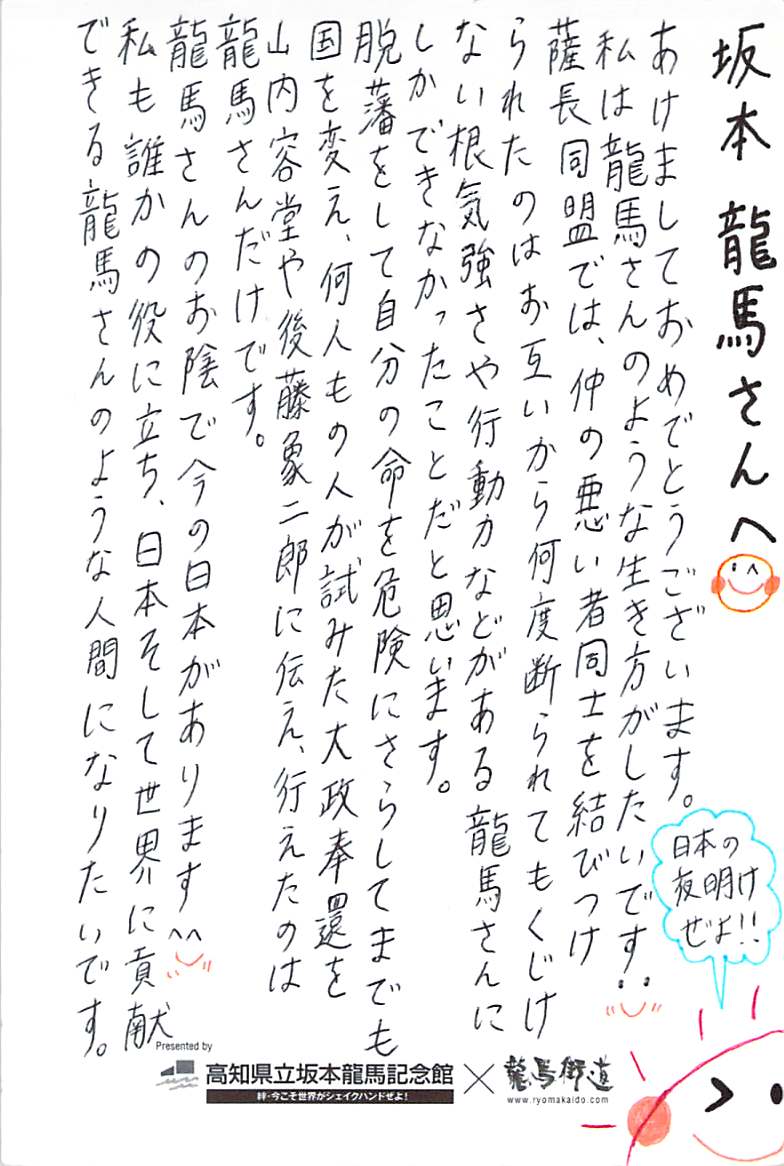 坂本龍馬さんへ
あけましておめでとうございます。
私は龍馬さんのような生き方がしたいです
薩長同盟では、仲の悪い者同士を結びつけ
られたのはお互いから何度断られてもくじけ
ない根気強さや行動力などがある龍馬さんに
しかできなかったことだと思います。
脱藩をして自分の命を危険にさらしてまでも
国を変え、何人もの人が試みた大政奉還を
山内容堂や後藤象二郎に伝え、行えたのは
龍馬さんだけです。
龍馬さんのお陰で今の日本があります^^
私も誰かの役に立ち、日本そして世界に貢献
できる龍馬さんのような人間になりたいです。
日本の
夜明け
ぜよ!!
Presented by
高知県立坂本龍馬記念館×龍馬街道
絆・今こそ世界がシェイクハンドぜよ!
www.ryomakaido.com